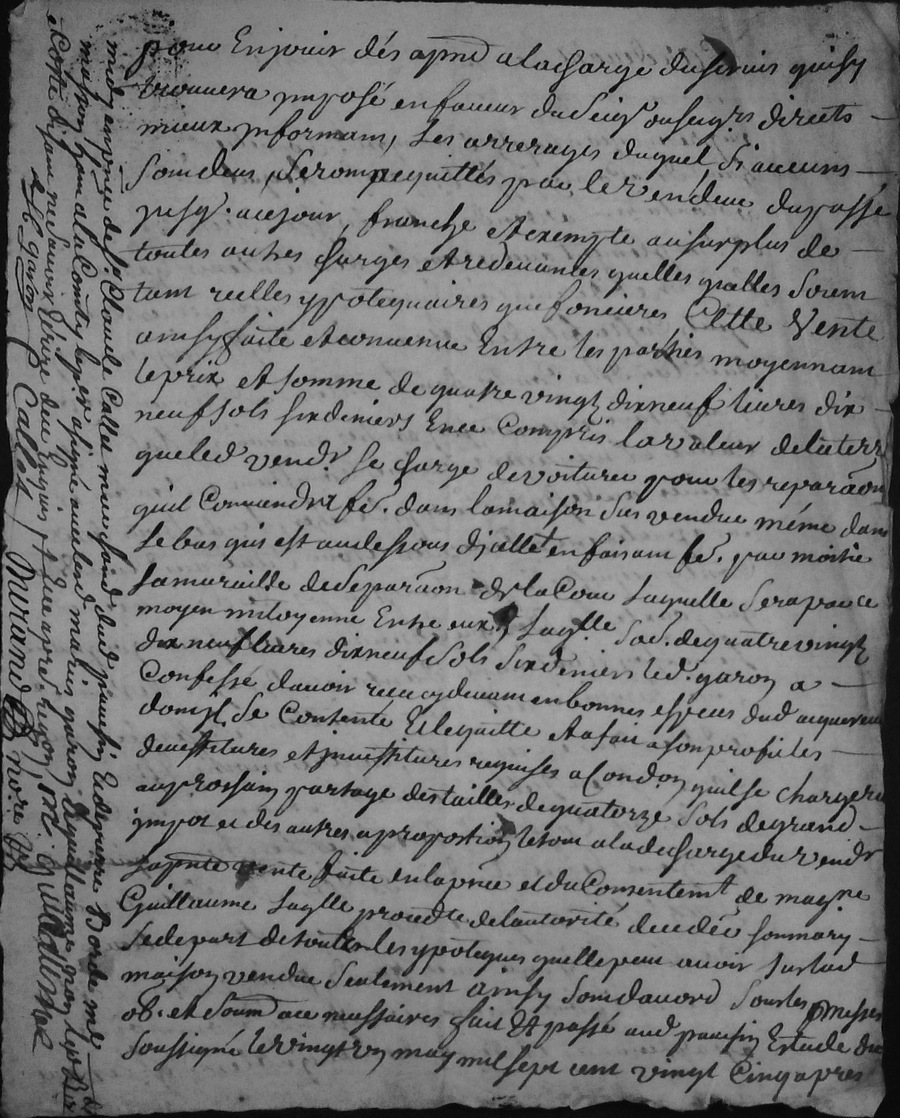 pour En jouir dés apnt a la charge du servis quisy
trouvera ymposé en faveur du Seigr ou seigrs directs
mieux ynformam, Les arrerages duquel si aucuns
Som deus, Serom acquittés par le Vendeur du passé
jusq. ace jour, franche et exempte au surplus de
toutes autres charges et redevances quelles qualles soient
tam reelles ypotequaires que foncieres Cette Vente
ainsy faite et convenue Entre les parties moyennam
le prix et somme de quatre vingt dix neuf livres dix
neuf sols six deniers En ce Compris la valeur de la terre
que led vendr se charge de voiturer pour les reparaons
quil Conviendra fe. dans la maison sus vendue même dans
Le bas qui est au dessous djcelle en faisam fe. par moitié
la muraille de separaon de la Cour Laquelle Sera par ce
moyen mitoyenne Entre eux, Laqlle So.e de quatre vingt
dix neuf livres dix neuf Sols Six deniers led. garon a
Confessé davoir receu cy devam en bonnes especes dud acquereur
dom jl Se Contente Et le quitte et a fait a son profit les
devestitures et jnvestitures requises a Condon quil se chargera
au prochain partage des tailles de quatorze Sols de grand
jmpot et des autres a proportion le tout a la decharge du vendr
la pnte vente faite en la pnce et du Consentemt de magne
Guillaume Laqlle procede de lautorité dud son mary
se depart de toutes les ypoteques quelle peut avoir sur lad
maison vendue Seulement ainsy Som davord Sous les pmesses
ob. et Soum ace nessaires fait Et passé aud Estude du
soussigné le vingt un may mil sept cent vingt Cinq apres
midy en pnce de Sr Claude Calles marchand dud Et de pierre Borde me
masson a la Comté soussigné avec led marius garon, Guillaume non led
de ce enquis Et duement requis
garon Calles M. guilleaume
Durand nore